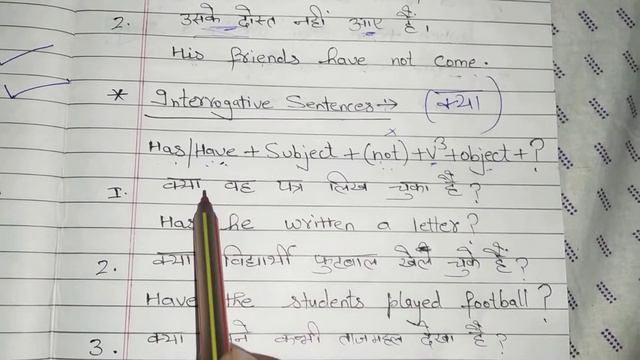 2. उसके दोस्त नहीं आए हैं।
His friends have not come.
* Interrogative Sentences → (क्या)
Has/Have + Subject + (not) + V³ + object + ?
1. क्या वह पत्र लिख चुका है?
Has he written a letter?
2. क्या विद्यार्थी फुटबाल खेल चुके हैं?
Have the students played football?
3. क्या कभी ताजमहल देखा है?